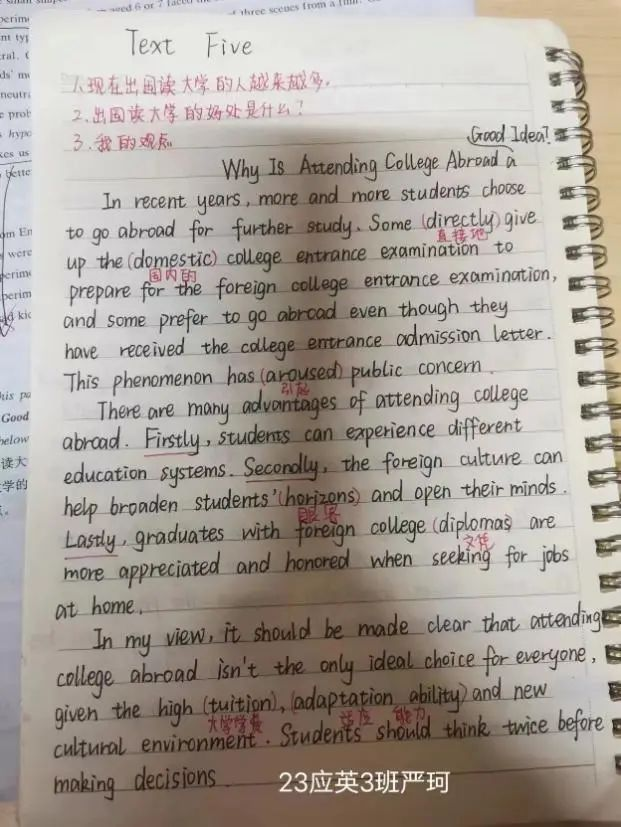 Text Five
1.现在出国读大学的人越来越多。
2.出国读大学的好处是什么?
3.我的观点
Good Idea?
Why Is Attending College Abroad a
In recent years, more and more students choose
to go abroad for further study. Some (directly) give
直接地
up the (domestic) college entrance examination to
国内的
prepare for the foreign college entrance examination,
and some prefer to go abroad even though they
have received the college entrance admission letter.
This phenomenon has (aroused) public concern.
引起
There are many advantages of attending college
abroad. Firstly, students can experience different
education systems. Secondly, the foreign culture can
help broaden students' (horizons) and open their minds.
眼界
Lastly, graduates with foreign college (diplomas) are
文凭
more appreciated and honored when seeking for jobs
at home.
In my view, it should be made clear that attending
college abroad isn't the only ideal choice for everyone,
given the high (tuition), (adaptation ability) and new
大学学费 适应 能力
cultural environment. Students should think twice before
making decisions.
23应英3班严珂